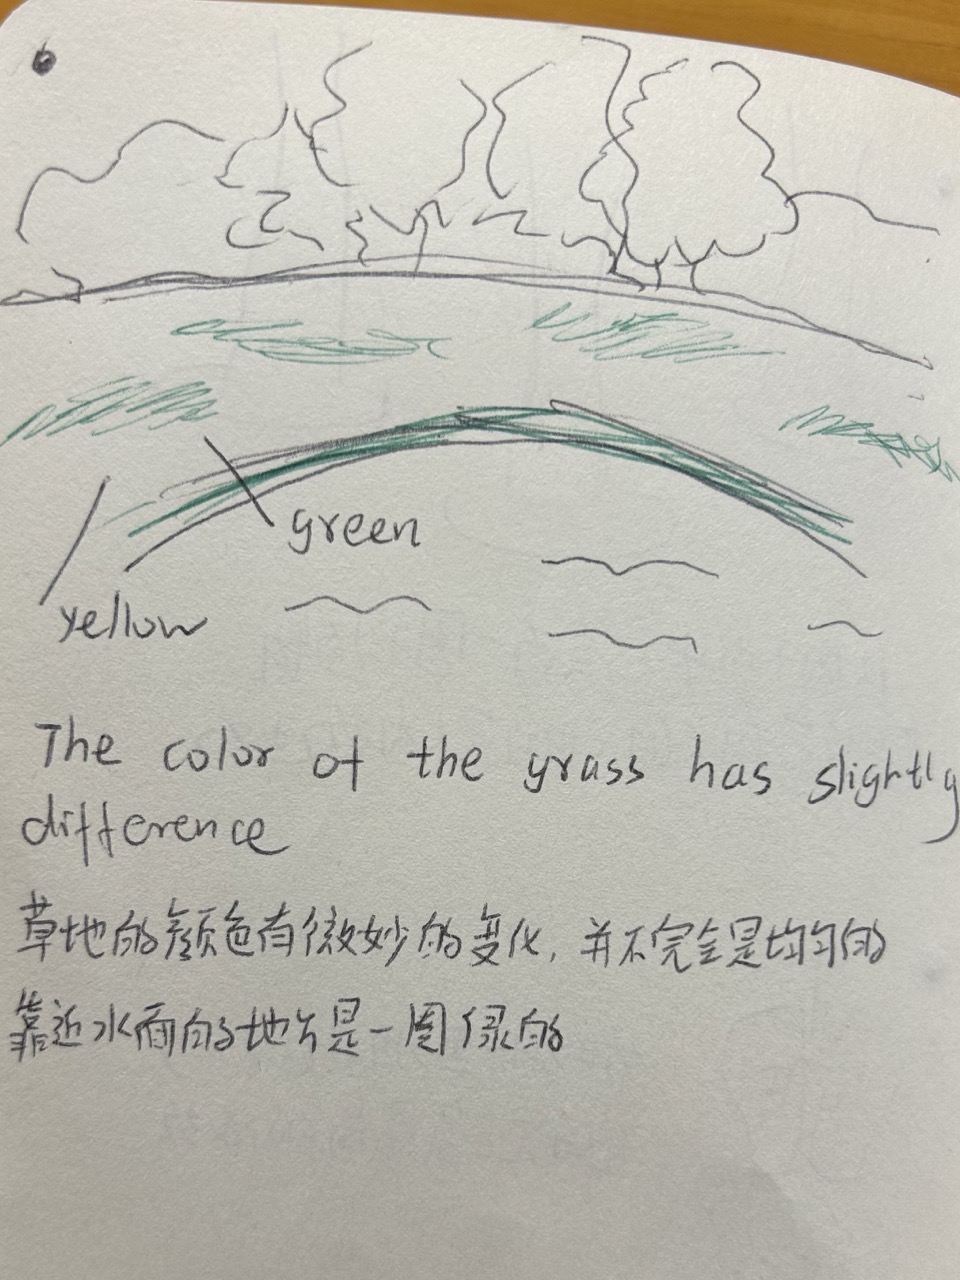 green
yellow
The color of the grass has slightly
difference
草地的颜色有微妙的变化，并不完全是均匀的
靠近水面的地方是一圈绿的